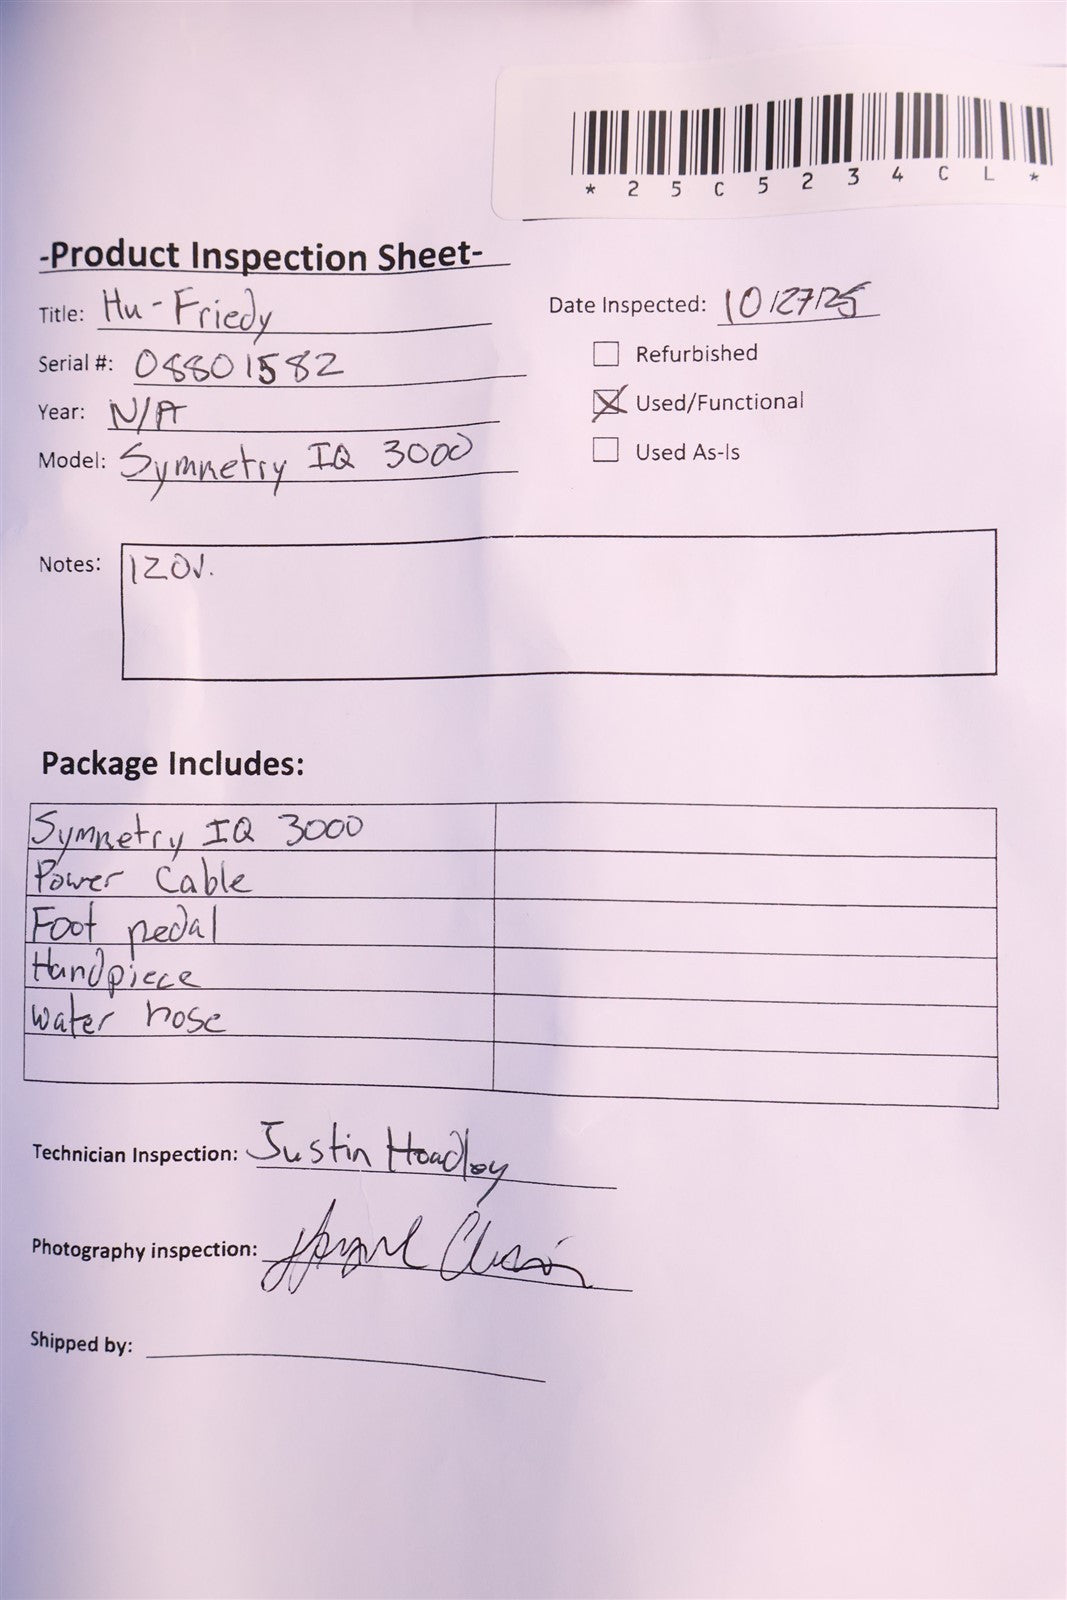 *25C5234CL*
-Product Inspection Sheet-
Title: Hu-Friedy
Date Inspected: 10/27/25
Serial #: 08801582
Refurbished
Year: N/A
Used/Functional
Model: Symmetry IQ 3000
Used As-Is
Notes: 120V.
Package Includes:
Symmetry IQ 3000
Power Cable
Foot pedal
Handpiece
water hose
Technician Inspection: Justin Hoadley
Photography inspection:
Shipped by: